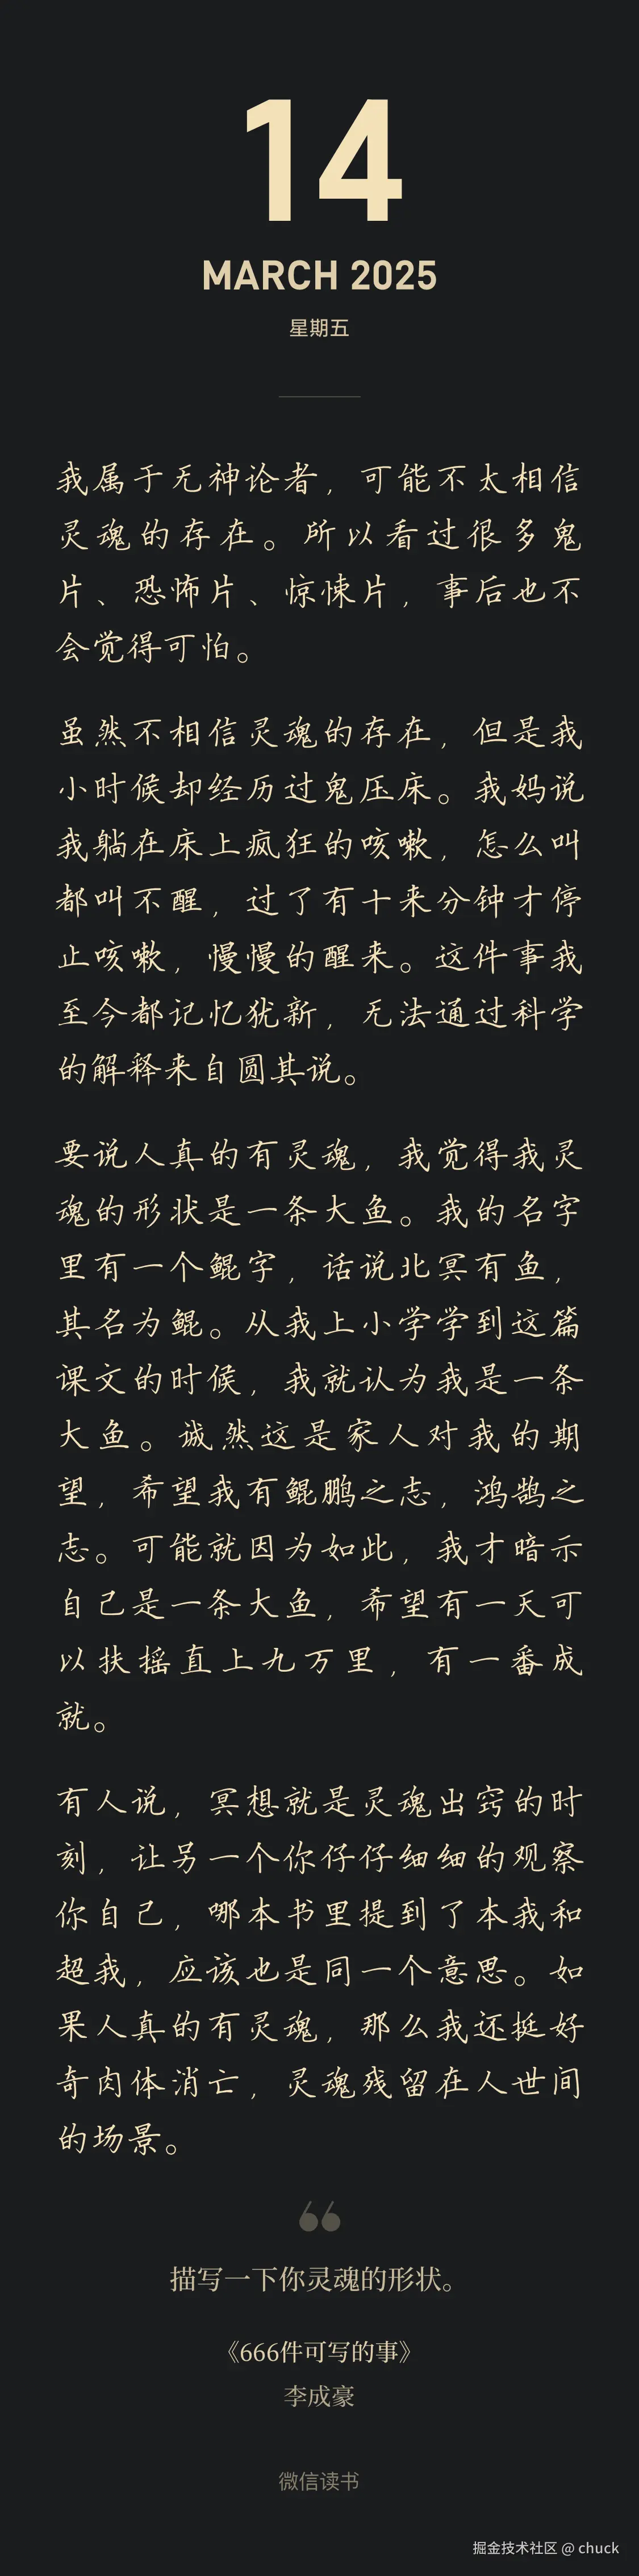 14
MARCH 2025
星期五
我属于无神论者，可能不太相信
灵魂的存在。所以看过很多鬼
片、恐怖片、惊悚片，事后也不
会觉得可怕。
虽然不相信灵魂的存在，但是我
小时候却经历过鬼压床。我妈说
我躺在床上疯狂的咳嗽，怎么叫
都叫不醒，过了有十来分钟才停
止咳嗽，慢慢的醒来。这件事我
至今都记忆犹新，无法通过科学
的解释来自圆其说。
要说人真的有灵魂，我觉得我灵
魂的形状是一条大鱼。我的名字
里有一个鲲字，话说北冥有鱼，
其名为鲲。从我上小学学到这篇
课文的时候，我就认为我是一条
大鱼。诚然这是家人对我的期
望，希望我有鲲鹏之志，鸿鹄之
志。可能就因为如此，我才暗示
自己是一条大鱼，希望有一天可
以扶摇直上九万里，有一番成
就。
有人说，冥想就是灵魂出窍的时
刻，让另一个你仔仔细细的观察
你自己，哪本书里提到了本我和
超我，应该也是同一个意思。如
果人真的有灵魂，那么我还挺好
奇肉体消亡，灵魂残留在人世间
的场景。
“
描写一下你灵魂的形状。
《666件可写的事》
李成豪
微信读书
掘金技术社区 @ chuck